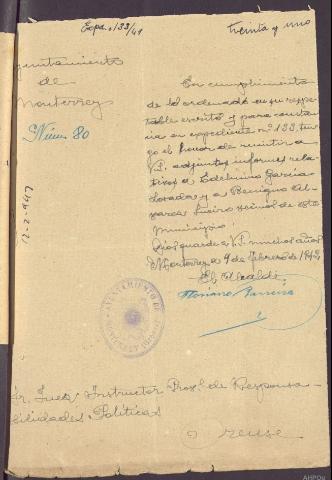 Expe. 133/41
treinta y uno
Ayuntamiento
de
Monterrey
Núm. 80
12-2-942
En cumplimiento
de lo ordenado en su respe-
table escrito y para constan-
cia en expediente nº 133, ten-
go el honor de remitir a
V.S. adjuntos informes rela-
tivos a Edelmiro García
Losada y a Benigno Al-
varez vecinos de este
Municipio.
Dios guarde a V.S. muchos años
Monterrey a 9 de febrero de 1942
El Alcalde
AYUNTAMIENTO DE MONTERREY
Sr. Juez Instructor Provl. de Responsa-
bilidades Políticas
Orense
AHPOu